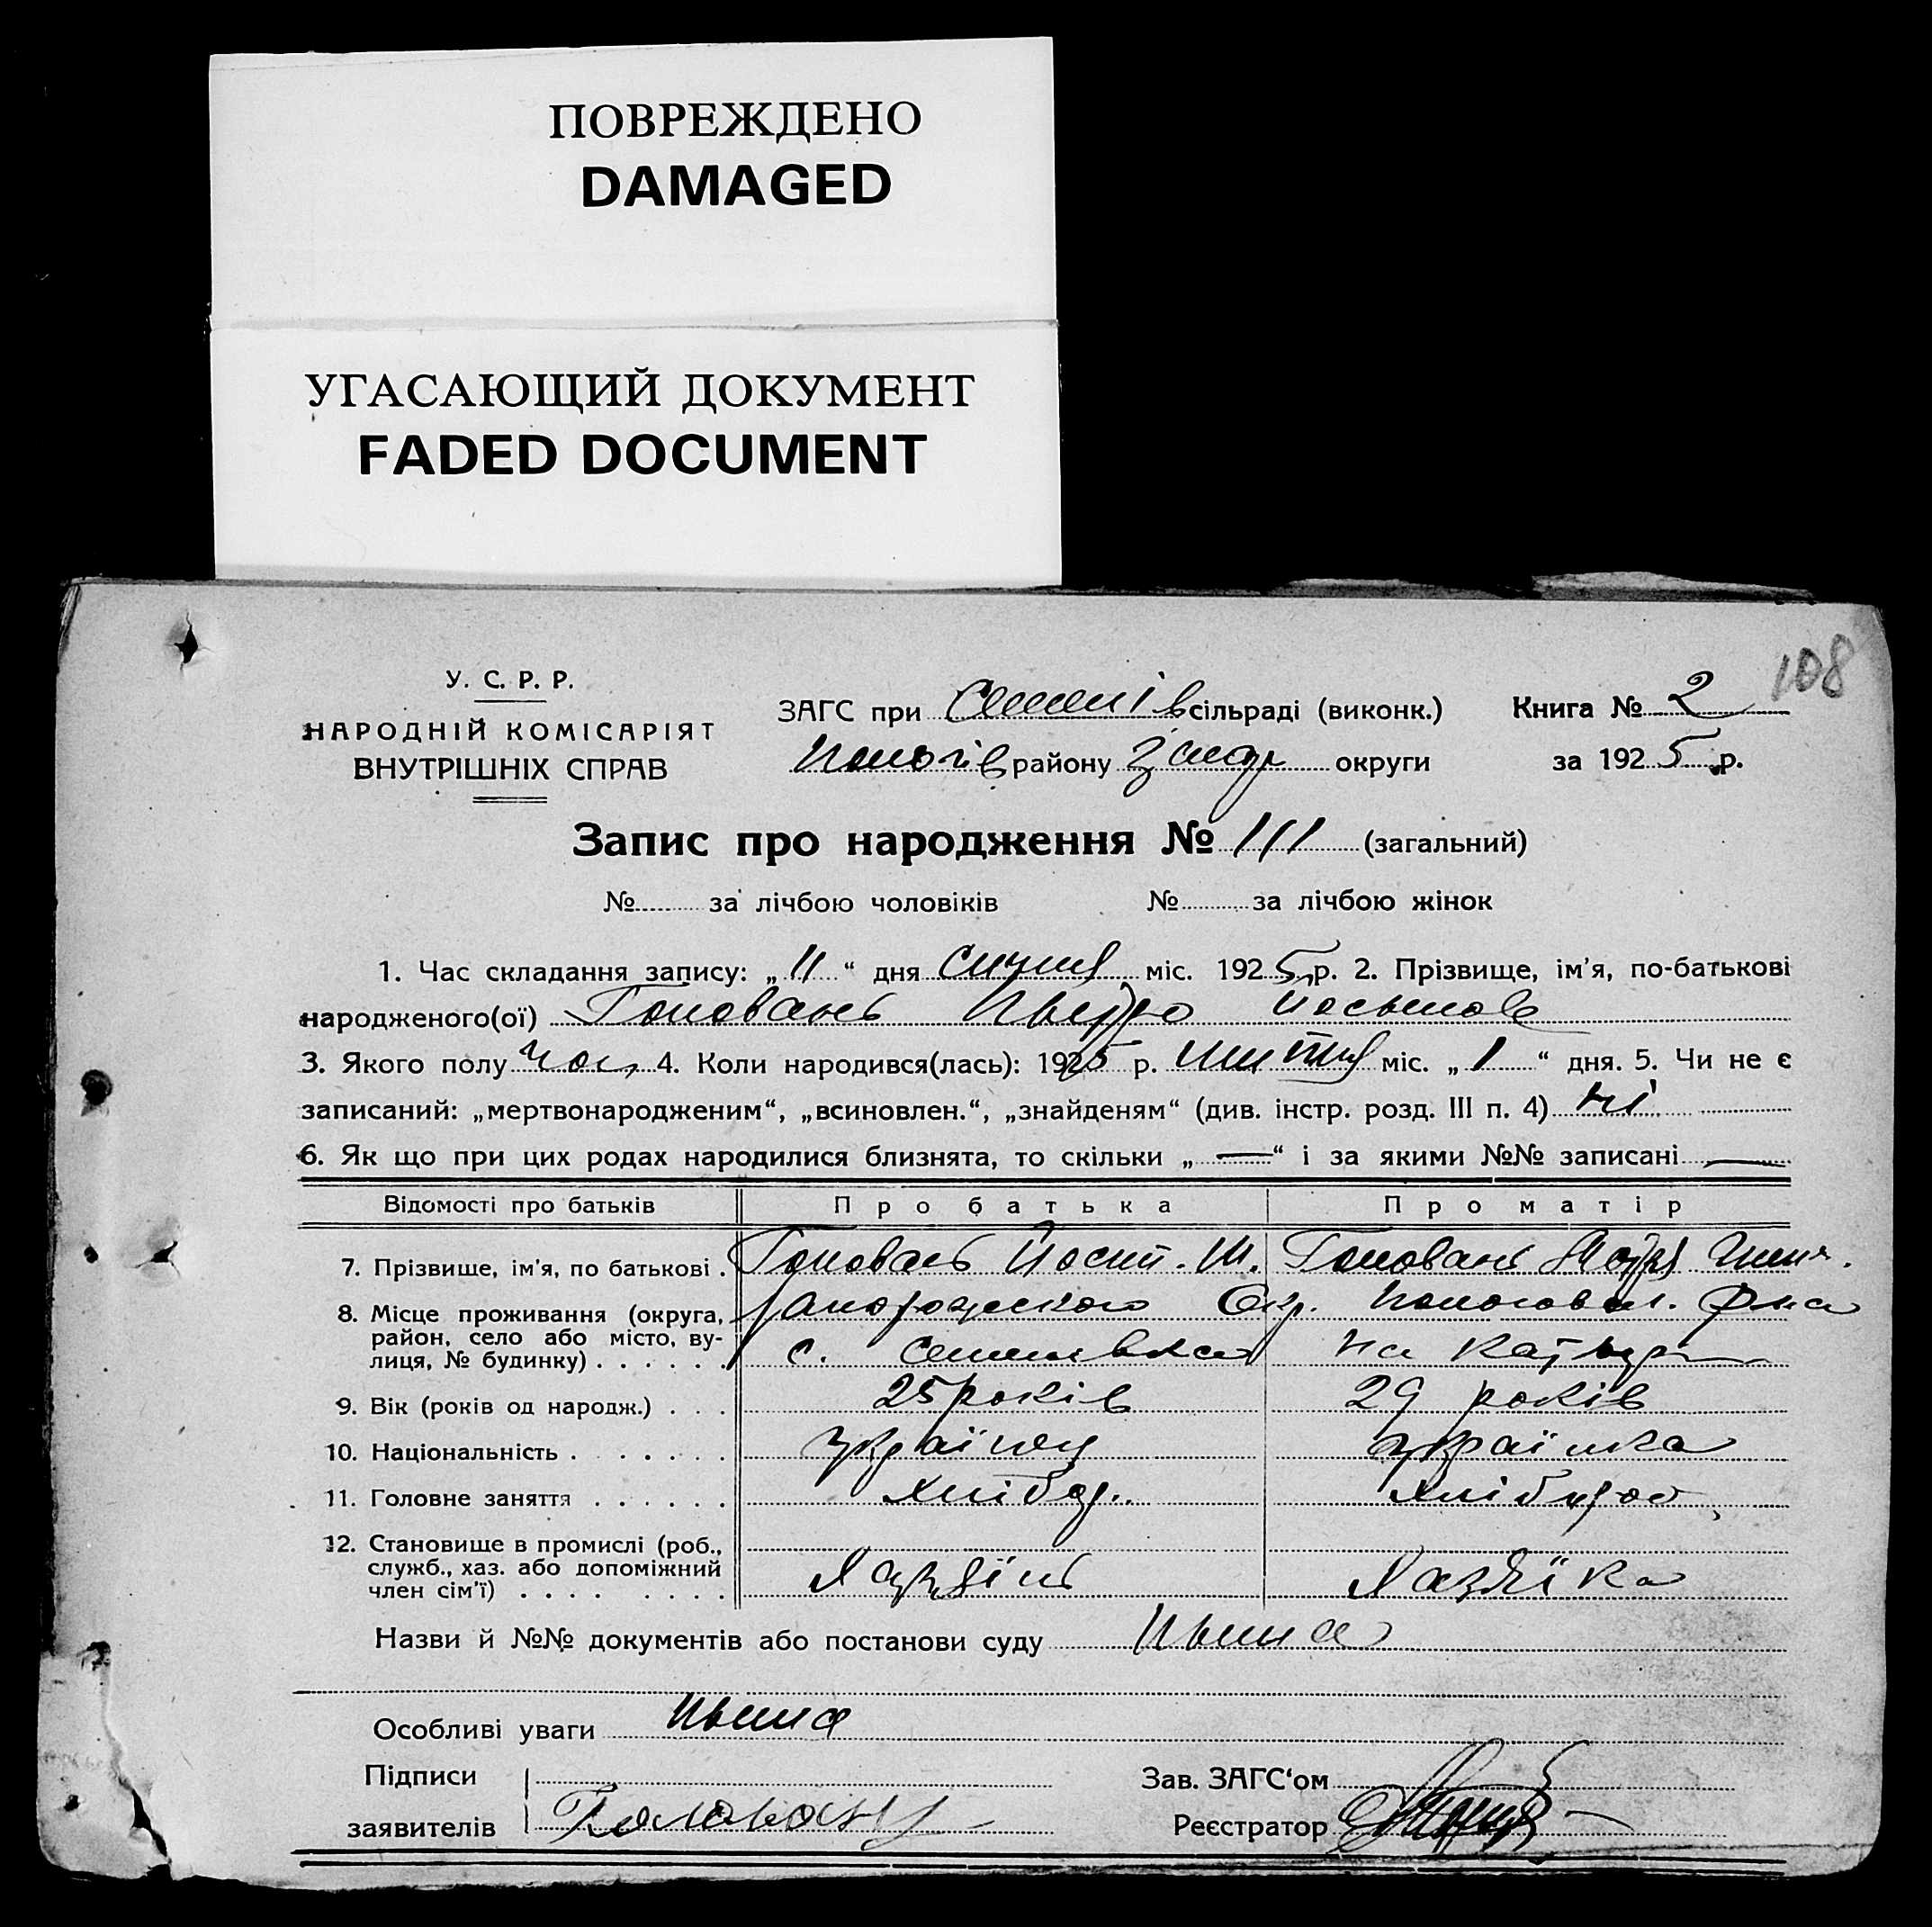 ПОВРЕЖДЕНО
DAMAGED
УГАСАЮЩИЙ ДОКУМЕНТ
FADED DOCUMENT
108
У. С. Р. Р.
НАРОДНІЙ КОМІСАРІЯТ
ВНУТРІШНІХ СПРАВ
ЗАГС при Семенів сільраді (виконк.) Книга № 2
Пологів району Запор округи за 1925 р.
Запис про народження № 111 (загальний)
№ за лічбою чоловіків № за лічбою жінок
1. Час складання запису: „ 11 “ дня міс. 1925 р. 2. Прізвище, ім’я, по-батькові
народженого(ої) Головань Петро
3. Якого полу чол, 4. Коли народився(лась): 1925 р. міс. „ 1 “ дня. 5. Чи не є
записаний: „мертвонародженим“, „всиновлен.“, „знайденям“ (див. інстр. розд. III п. 4) ні
6. Як що при цих родах народилися близнята, то скільки „ — “ і за якими №№ записані —
Відомості про батьків Про батька Про матір
7. Прізвище, ім’я, по батькові . Головань Йосип. Головань
8. Місце проживання (округа, Запорожского Окр. Пологовск. Р-на
район, село або місто, ву- с. Семенівка
лиця, № будинку) . . . . . .
9. Вік (років од народж.) . . . 25 років 29 років
10. Національність . . . . . . українец українка
11. Головне заняття . . . . . . хлібор.. хлібороб
12. Становище в промислі (роб.,
служб., хаз. або допоміжний
член сім’ї) . . . . . . . . Хазяїн Хазяїка
Назви й №№ документів або постанови суду Нема
Особливі уваги Нема
Підписи Зав. ЗАГС‘ом
заявителів Реєстратор